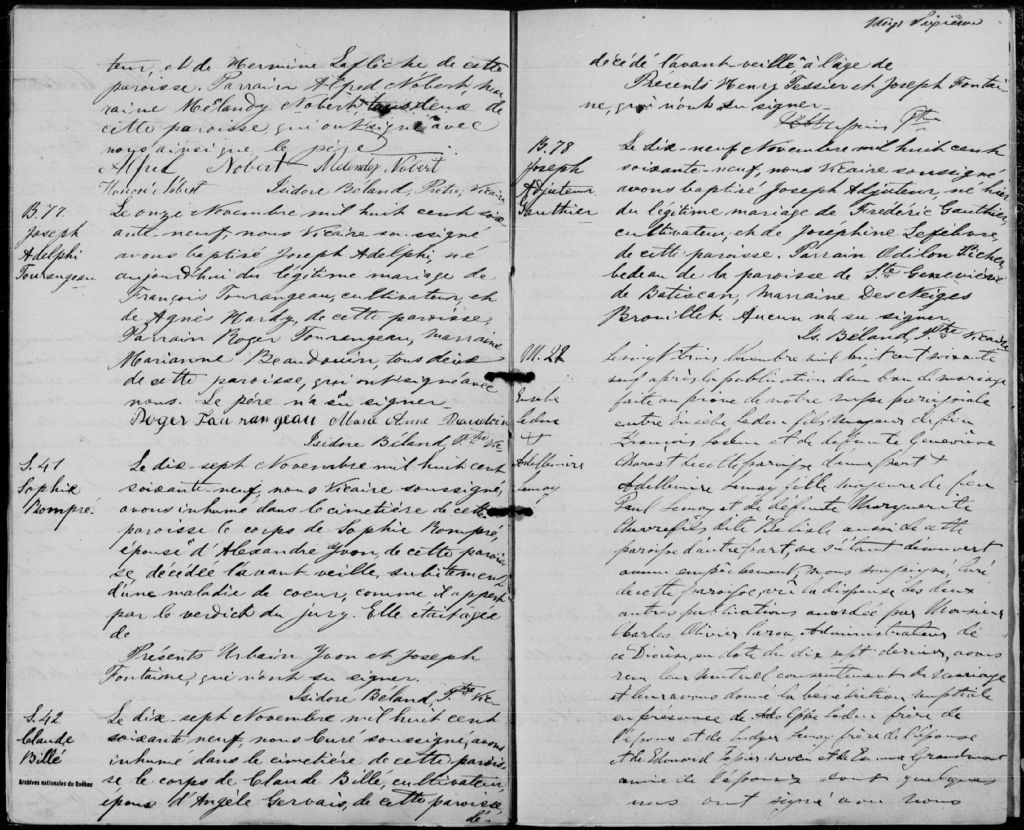 teur, et de Hermine Laflèche de cette
paroisse. Parrain Alfred Nobert, mar
raine Mélandy Nobert, tous deux de
cette paroisse qui ont signé avec
nous ainsi que le père
Alfred Nobert Melendez Nobert
Honoré Nobert Isidore Béland, Ptre, Vicaire
B.77.
Joseph
Adelphi
Tourangeau
Le onze Novembre mil huit cent soix
ante-neuf, nous Vicaire soussigné
avons baptisé Joseph Adelphi, né
aujourd'hui du légitime mariage de
François Tourangeau, cultivateur, et
de Agnès Hardy, de cette paroisse,
Parrain Roger Tourangeau, marraine
Marianne Beaudouin, tous deux
de cette paroisse, qui ont signé avec
nous. Le père n'a su signer
Roger Tourangeau Marie Anne Beaudoin
Isidore Béland, Ptre Vic
S.41
Sophie
Bompré.
Le dix-sept Novembre mil huit cent
soixante-neuf, nous Vicaire soussigné,
avons inhumé dans le cimetière de cette
paroisse le corps de Sophie Bompré,
épouse d'Alexandre Yvon, de cette parois
se, décédée l'avant-veille, subitement
d'une maladie de coeur, comme il appert
par le verdict du jury. Elle était âgée
de
Présents Urbain Yvon et Joseph
Fontaine qui n'ont su signer.
Isidore Béland, Ptre Vic
S.42
Claude
Billé
Archives nationales du Québec
Le dix-sept Novembre mil huit cent
soixante neuf, nous Curé soussigné, avons
inhumé dans le cimetière de cette parois
se le corps de Claude Billé, cultivateur
époux d'Angèle Gervais, de cette paroisse,
dé-
Vingt
décédé l'avant-veille à l'âge de
Présents Henry Tessier et Joseph Fontai
ne, qui n'ont su signer
Ptre
B.78
Joseph
Adjuteur
Gauthier
Le dix-neuf Novembre mil huit cent
soixante-neuf, nous Vicaire soussigné
avons baptisé Joseph Adjuteur, né hier
du légitime mariage de Frédéric Gauthier
cultivateur, et de Josephine Lefebvre,
de cette paroisse. Parrain Odilon Riche
bedeau de la paroisse de Ste Geneviève
de Batiscan, Marraine Des Neiges
Brouillet. Aucun n'a su signer
Is. Béland, Ptre Vicaire
M.22
Eusèbe
Leduc
&
Adellemire
Lemay
Le vingt trois Novembre mil huit cent soixante
neuf après la publication d'un ban de mariage
faite au prône de notre messe paroissiale
entre Eusèbe Leduc fils majeur de feu
François Leduc et de défunte Geneviève
Charest de cette paroisse d'une part &
Adellemire Lemay fille majeure de feu
Paul Lemay et de défunte Marguerite
de Belisle aussi de cette
paroisse d'autre part, ne s'étant découvert
aucun empêchement, nous soussigné, Curé
de cette paroisse, vu la dispense des deux
autres publications accordée par Monsieur
Charles Olivier Caron, Administrateur de
ce Diocèse, en date du dix sept dernier, avons
reçu leur mutuel consentement de mariage
et leur avons donné la bénédiction nuptiale
en présence de Adolphe Leduc frère de
l'époux et de Ludger Lemay frère de l'épouse
& de Edouard et de Grandmont
amie de l'épouse dont quelques
uns ont signé avec nous